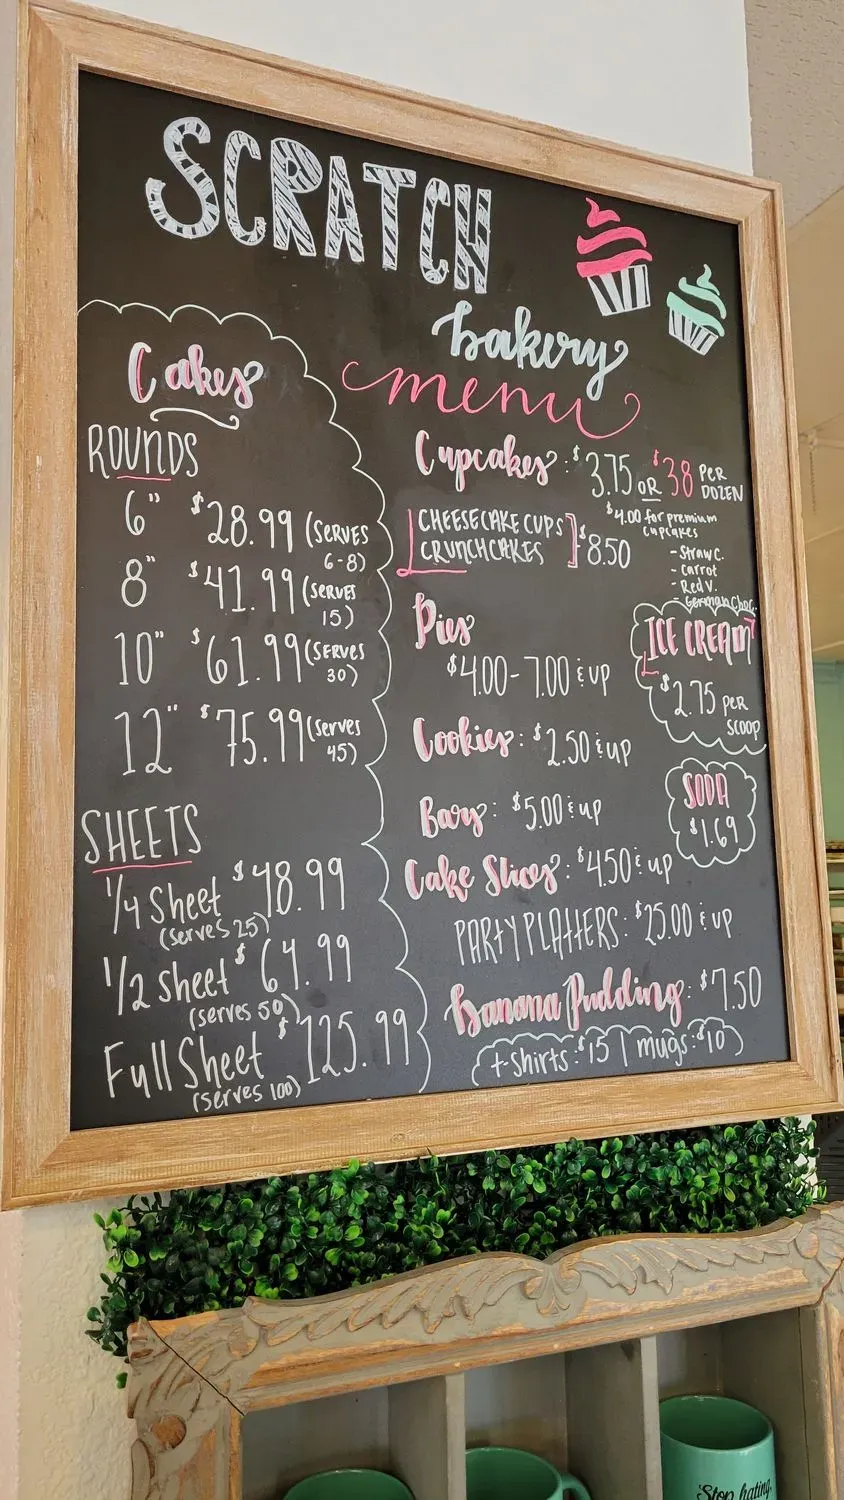 SCRATCH
bakery
menu
Cakes
ROUNDS
6" $28.99 (SERVES
6-8)
8" $41.99 (SERVES
15)
10" $61.99 (SERVES
30)
12" $75.99 (serves
45)
SHEETS
1/4 Sheet $48.99
(serves 25)
1/2 Sheet $64.99
(serves 50)
Full Sheet $125.99
(serves 100)
Cupcakes: $3.75 OR $38 PER
DOZEN
$4.00 for premium
cupcakes
- Straw C.
- Carrot
- Red V.
- German Choc.
CHEESECAKE CUPS
CRUNCHCAKES
$8.50
Pies
$4.00-7.00 & up
ICE CREAM
$2.75 PER
SCOOP
Cookies: $2.50 & up
SODA
$1.69
Bars: $5.00 & up
Cake Slices: $4.50 & up
PARTY PLATTERS: $25.00 & up
Banana Pudding: $7.50
t-shirts: $15 | mugs: $10
Stop hating,